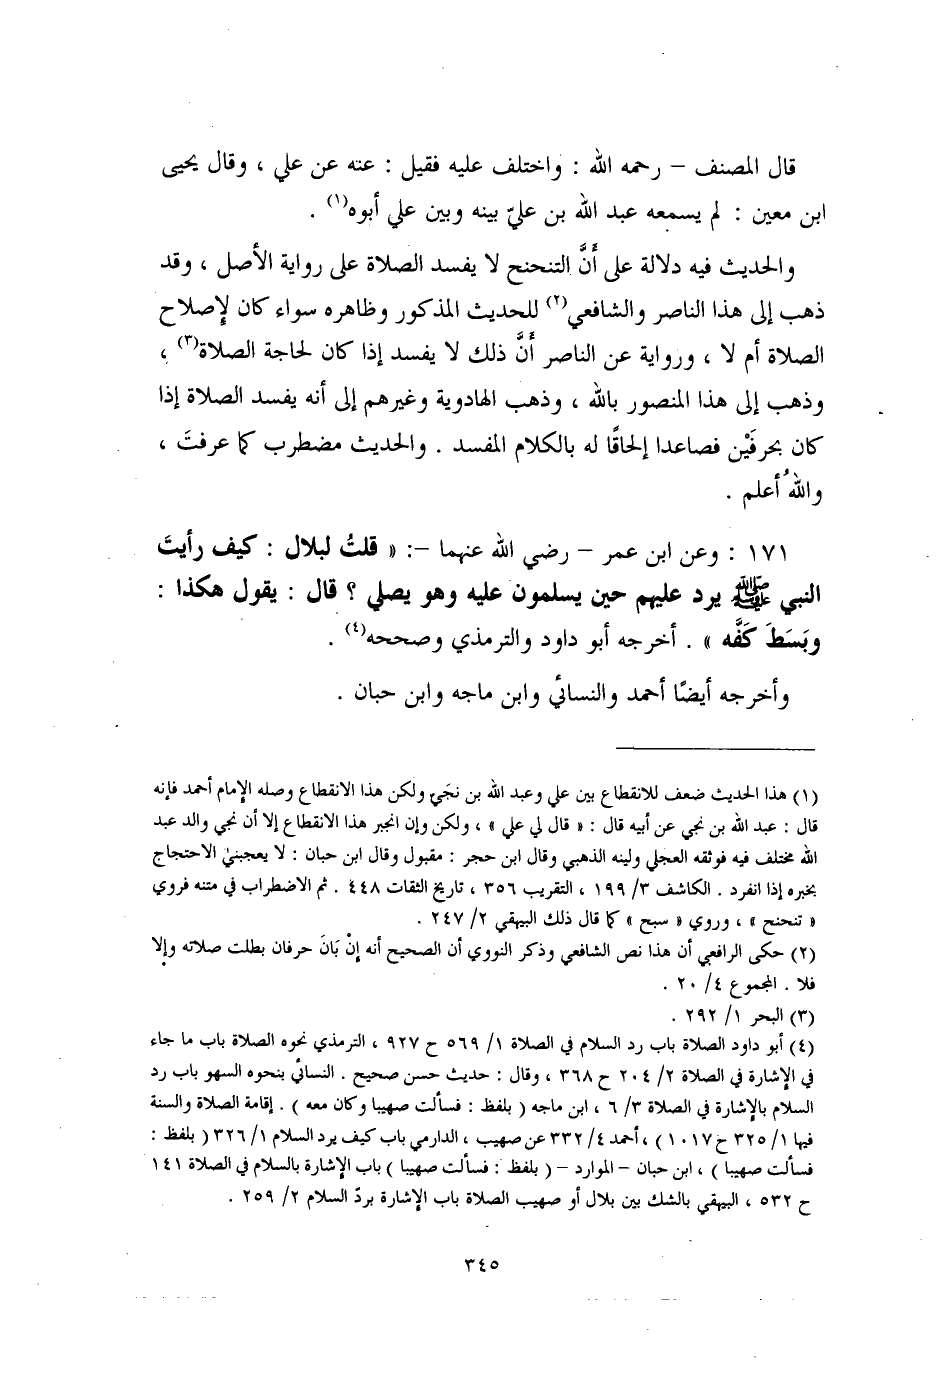 قال المصنف – رحمه الله : واختلف عليه فقيل : عنه عن علي ، وقال يحيى
ابن معين : لم يسمعه عبد الله بن عليّ بينه وبين علي أبوه(١) .
والحديث فيه دلالة على أَنَّ التنحنح لا يفسد الصلاة على رواية الأصل ، وقد
ذهب إلى هذا الناصر والشافعي(٢) للحديث المذكور وظاهره سواء كان لإصلاح
الصلاة أم لا ، ورواية عن الناصر أَنَّ ذلك لا يفسد إذا كان لحاجة الصلاة(٣) ،
وذهب إلى هذا المنصور بالله ، وذهب الهادوية وغيرهم إلى أنه يفسد الصلاة إذا
كان بحرفَيْن فصاعدا إلحاقًا له بالكلام المفسد . والحديث مضطرب كما عرفتَ ،
واللهُ أعلم .
١٧١ : وعن ابن عمر – رضي الله عنهما –: « قلتُ لبلال : كيف رأيتَ
النبي ﷺ يرد عليهم حين يسلمون عليه وهو يصلي ؟ قال : يقول هكذا :
وبَسَطَ كَفَّه » . أخرجه أبو داود والترمذي وصححه(٤) .
وأخرجه أيضًا أحمد والنسائي وابن ماجه وابن حبان .
(١) هذا الحديث ضعف للانقطاع بين علي وعبد الله بن نجَي ولكن هذا الانقطاع وصله الإمام أحمد فإنه
قال : عبد الله بن نجي عن أبيه قال : « قال لي علي » ، ولكن وإن انجبر هذا الانقطاع إلا أن نجي والد عبد
الله مختلف فيه فوثقه العجلي ولينه الذهبي وقال ابن حجر : مقبول وقال ابن حبان : لا يعجبني الاحتجاج
بخبره إذا انفرد . الكاشف ٣/ ١٩٩ ، التقريب ٣٥٦ ، تاريخ الثقات ٤٤٨ . ثم الاضطراب في متنه فروي
« تنحنح » ، وروي « سبح » كما قال ذلك البيهقي ٢/ ٢٤٧ .
(٢) حكى الرافعي أن هذا نص الشافعي وذكر النووي أن الصحيح أنه إنْ بَانَ حرفان بطلت صلاته وإلا
فلا . المجموع ٤/ ٢٠ .
(٣) البحر ١/ ٢٩٢ .
(٤) أبو داود الصلاة باب رد السلام في الصلاة ١/ ٥٦٩ ح ٩٢٧ ، الترمذي نحوه الصلاة باب ما جاء
في الإشارة في الصلاة ٢/ ٢٠٤ ح ٣٦٨ ، وقال : حديث حسن صحيح . النسائي بنحوه السهو باب رد
السلام بالإشارة في الصلاة ٣/ ٦ ، ابن ماجه ( بلفظ : فسألت صهيبا وكان معه ) . إقامة الصلاة والسنة
فيها ١/ ٣٢٥ ح ١٠١٧ ) ، أحمد ٤/ ٣٣٢ عن صهيب ، الدارمي باب كيف يرد السلام ١/ ٣٢٦ ( بلفظ :
فسألت صهيبا ) ، ابن حبان – الموارد – ( بلفظ : فسألت صهيبا ) باب الإشارة بالسلام في الصلاة ١٤١
ح ٥٣٢ ، البيهقي بالشك بين بلال أو صهيب الصلاة باب الإشارة بردّ السلام ٢/ ٢٥٩ .
٣٤٥